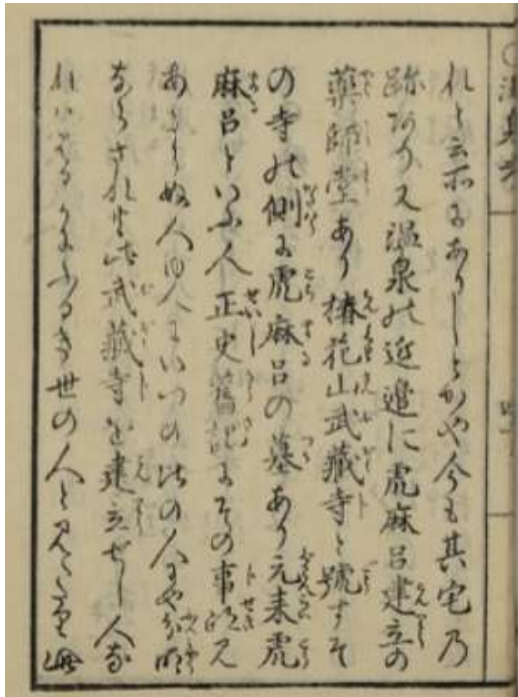 れと云所にありしとかや今も其宅乃
跡あり又温泉の近邉に虎麻呂建立の
藥師堂あり椿花山武藏寺と號すそ
の寺の側に虎麻呂の墓あり元来虎
麻呂といふ人正史舊記にその事跡見
あたらぬ人ゆゑにいつの比の人にや分明
ならされとも此武藏寺を建立せし人な
れハはるかにふるき世の人と見えたり